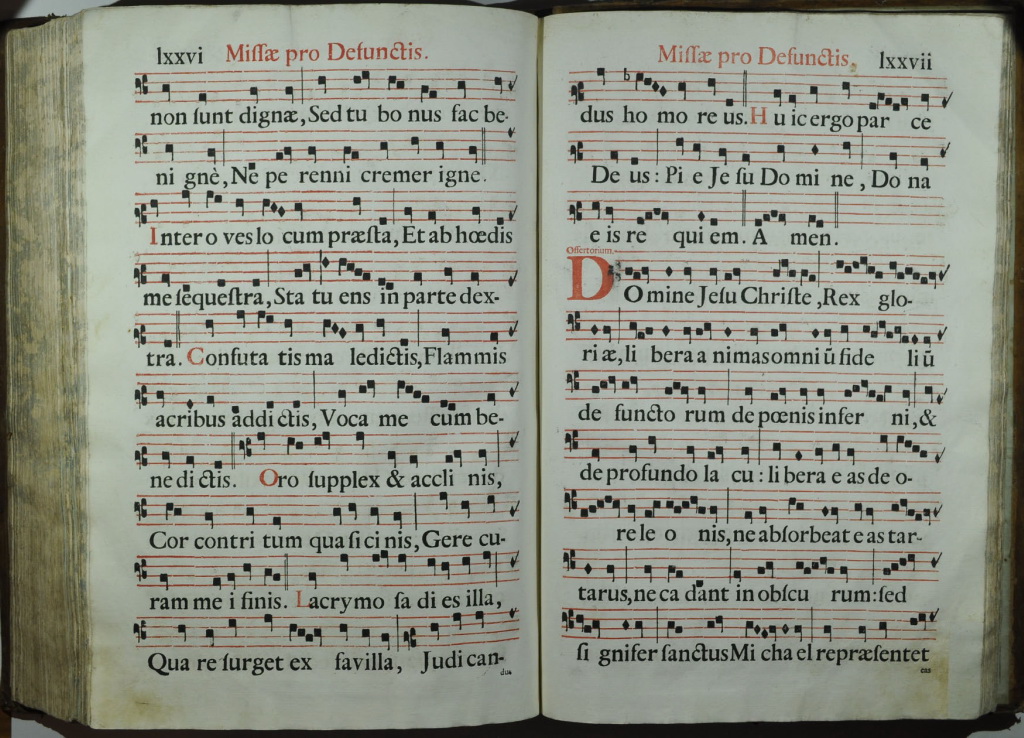 lxxvi Missæ pro Defunctis.
non sunt dignæ, Sed tu bo nus fac be-
ni gnè, Ne pe renni cremer igne.
Inter o ves lo cum præsta, Et ab hœdis
me sequestra, Sta tu ens in parte dex-
tra. Confuta tis ma ledictis, Flammis
acribus addi ctis, Voca me cum be-
ne di ctis. Oro supplex & accli nis,
Cor contri tum qua si ci nis, Gere cu-
ram me i finis. Lacrymo sa di es illa,
Qua re surget ex favilla, Judi can-
dus
Missæ pro Defunctis. lxxvii
dus ho mo re us. H u ic ergo par ce
De us: Pi e Je su Do mi ne, Do na
e is re qui em. A men.
Offertorium.
D O mine Jesu Christe, Rex glo-
ri æ, li bera a nimas omni ũ fide li ũ
de functo rum de pœnis infer ni, &
de profundo la cu: li bera e as de o-
re le o nis, ne absorbeat e as tar-
tarus, ne ca dant in obscu rum: sed
si gnifer sanctus Mi cha el repræsentet
eas